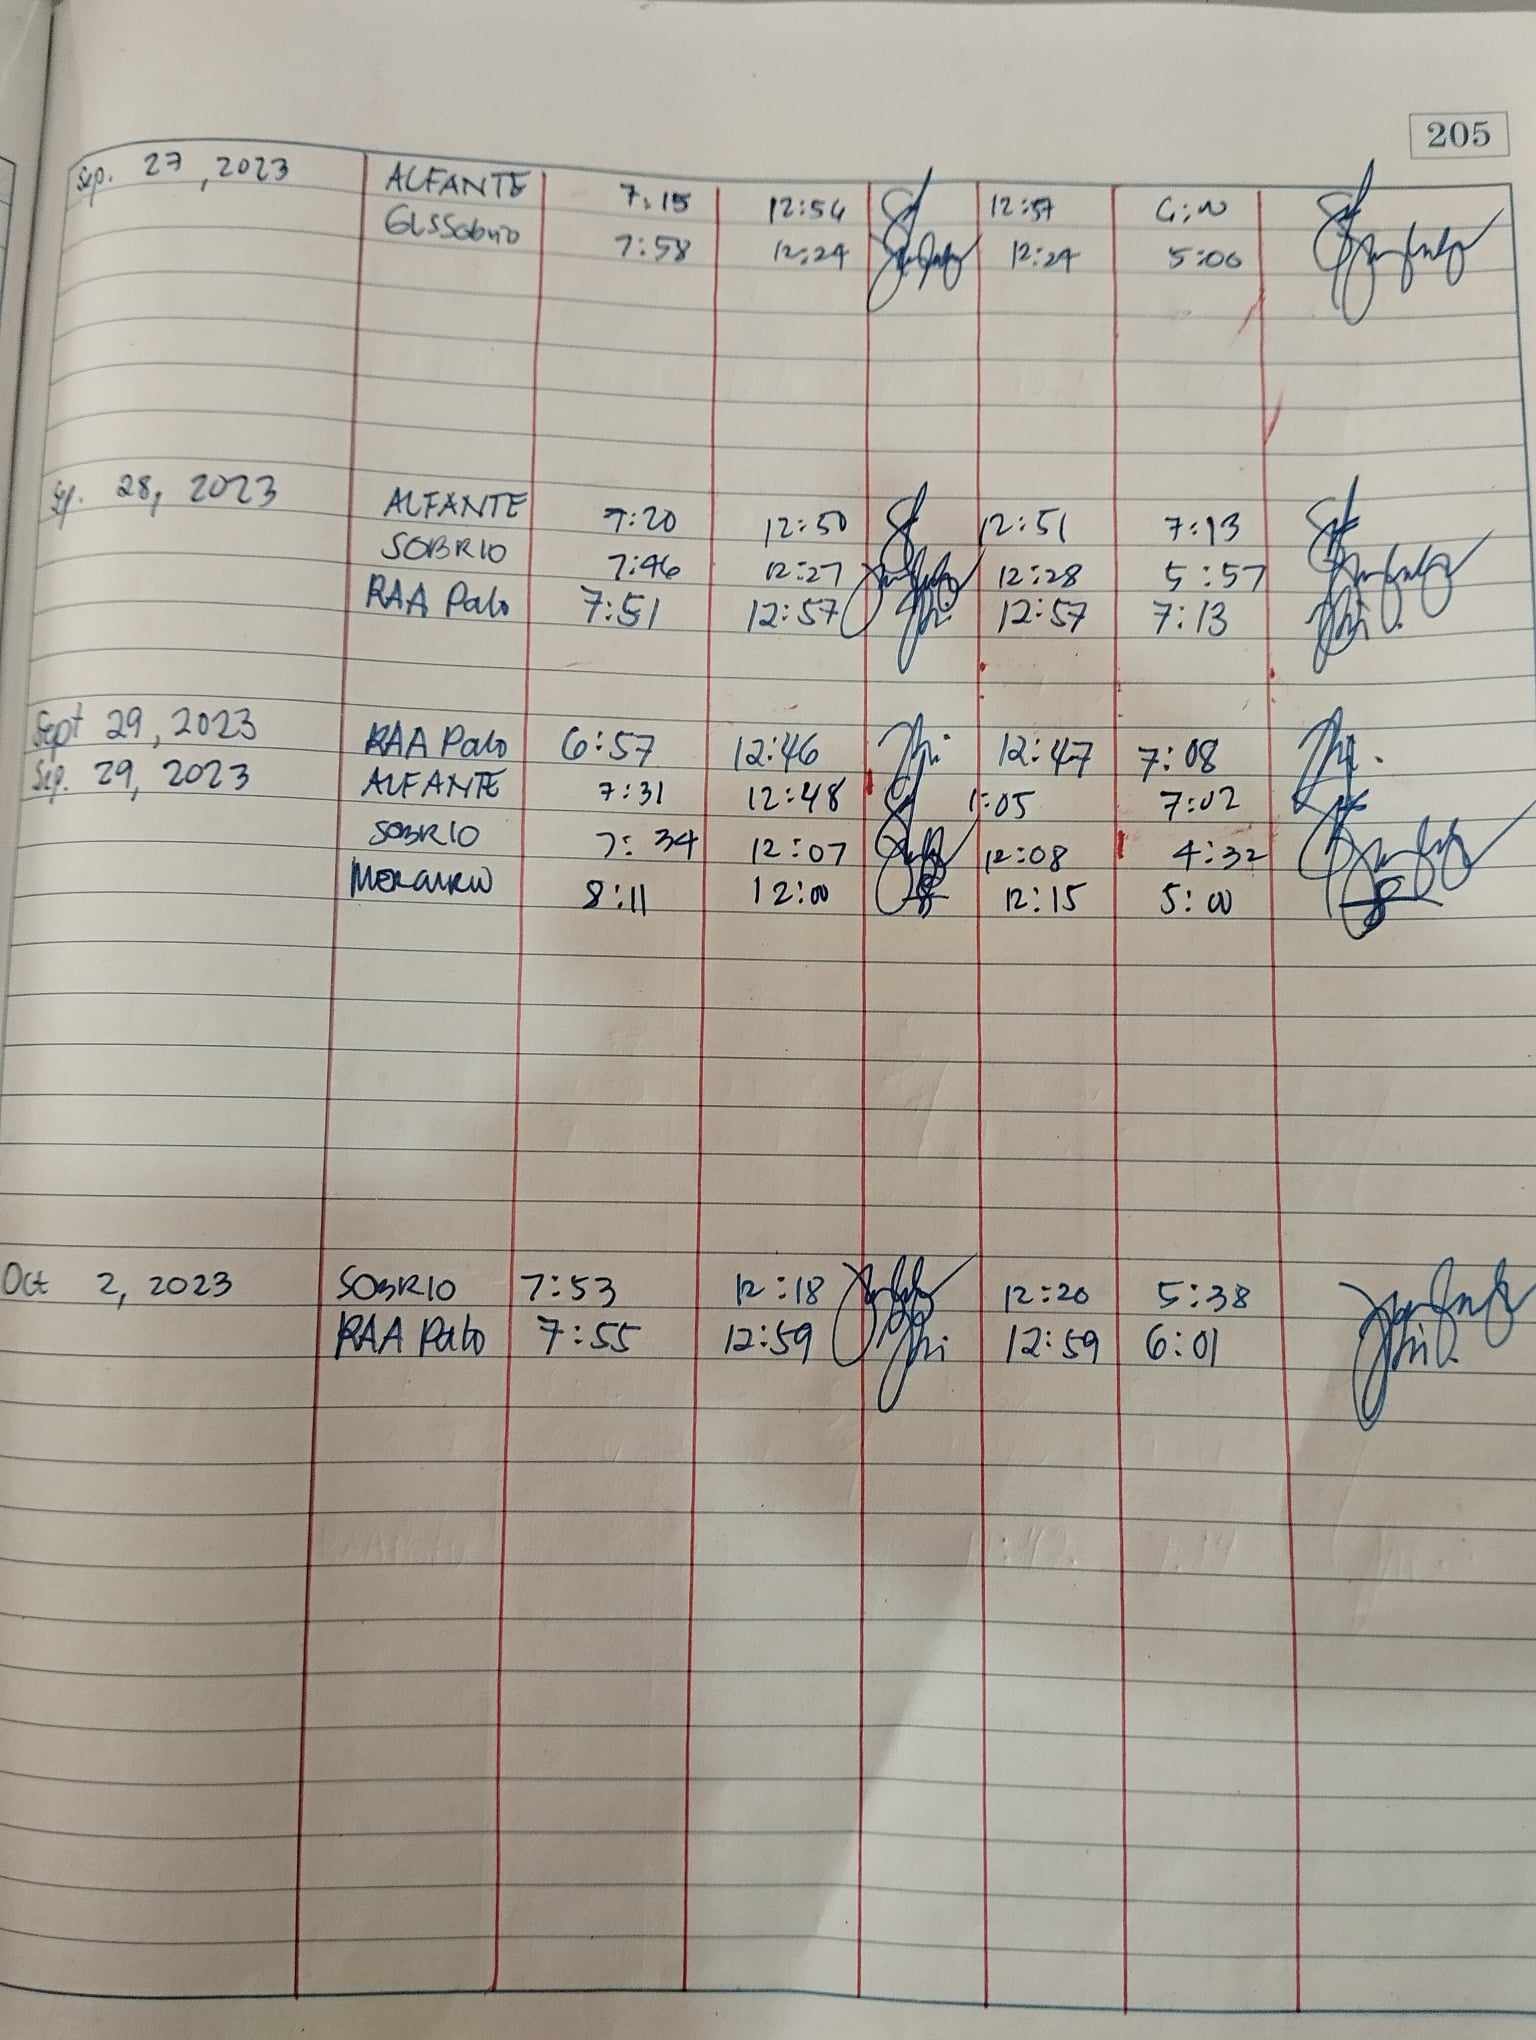 205
Sep. 27, 2023 ALFANTE 7:15 12:54 12:57
GLSSobrio 7:58 12:24 12:24 5:00
Sep. 28, 2023 ALFANTE 7:20 12:50 12:51 7:13
SOBRIO 7:46 12:27 12:28 5:57
RAA Palo 7:51 12:57 12:57 7:13
Sept 29, 2023 RAA Palo 6:57 12:46 12:47 7:08
Sep. 29, 2023 ALFANTE 7:31 12:48 1:05 7:02
SOBRIO 7:34 12:07 12:08 4:32
8:11 12:00 12:15 5:00
Oct 2, 2023 SOBRIO 7:53 12:18 12:20 5:38
RAA Palo 7:55 12:59 12:59 6:01